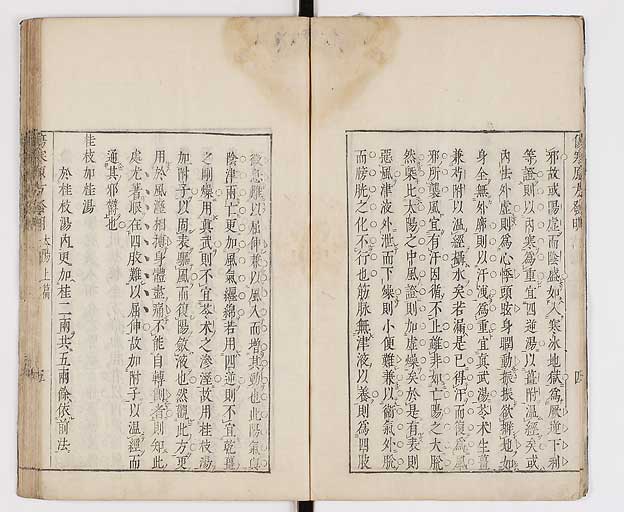 邪故或陽虛而陰盛如人寒冰地獄爲厥逆下利
等證則以內寒爲重宜四逆湯以薑附溫經矣或
內怯外虛則爲心悸頭眩身瞤動振振欲擗地如
身全無外廓則以汗洩爲重宜眞武湯苓朮生薑
兼芍附以溫經攝水矣若漏是已得汗而復爲風
邪所襲風宜有汗因循不止雖非如亡陽之大脫
然桊比太陽之中風證則加虛矣於是有表則
惡風津液外泄而下燥則小便難兼以衛氣外脫
而膀胱之化不行也筋脉無津液以養則爲四肢
微急難以屈伸兼以風入而增其勁也此陽氣與
陰津兩亡更加風氣纏綿若用四逆則不宜乾薑
之剛燥用眞武則不宜苓朮之滲溼故用桂枝湯
加附子以固表驅風而復陽斂液也然觀此方更
用於風溼相搏身體疼痛不能自轉側者則知此
處尤著眼在四肢難以屈伸故加附子以溫經而
通其邪鬱也
桂枝加桂湯
於桂枝湯內更加桂二兩共五兩餘依前法
傷寒原方發明
太陽上篇
四
五